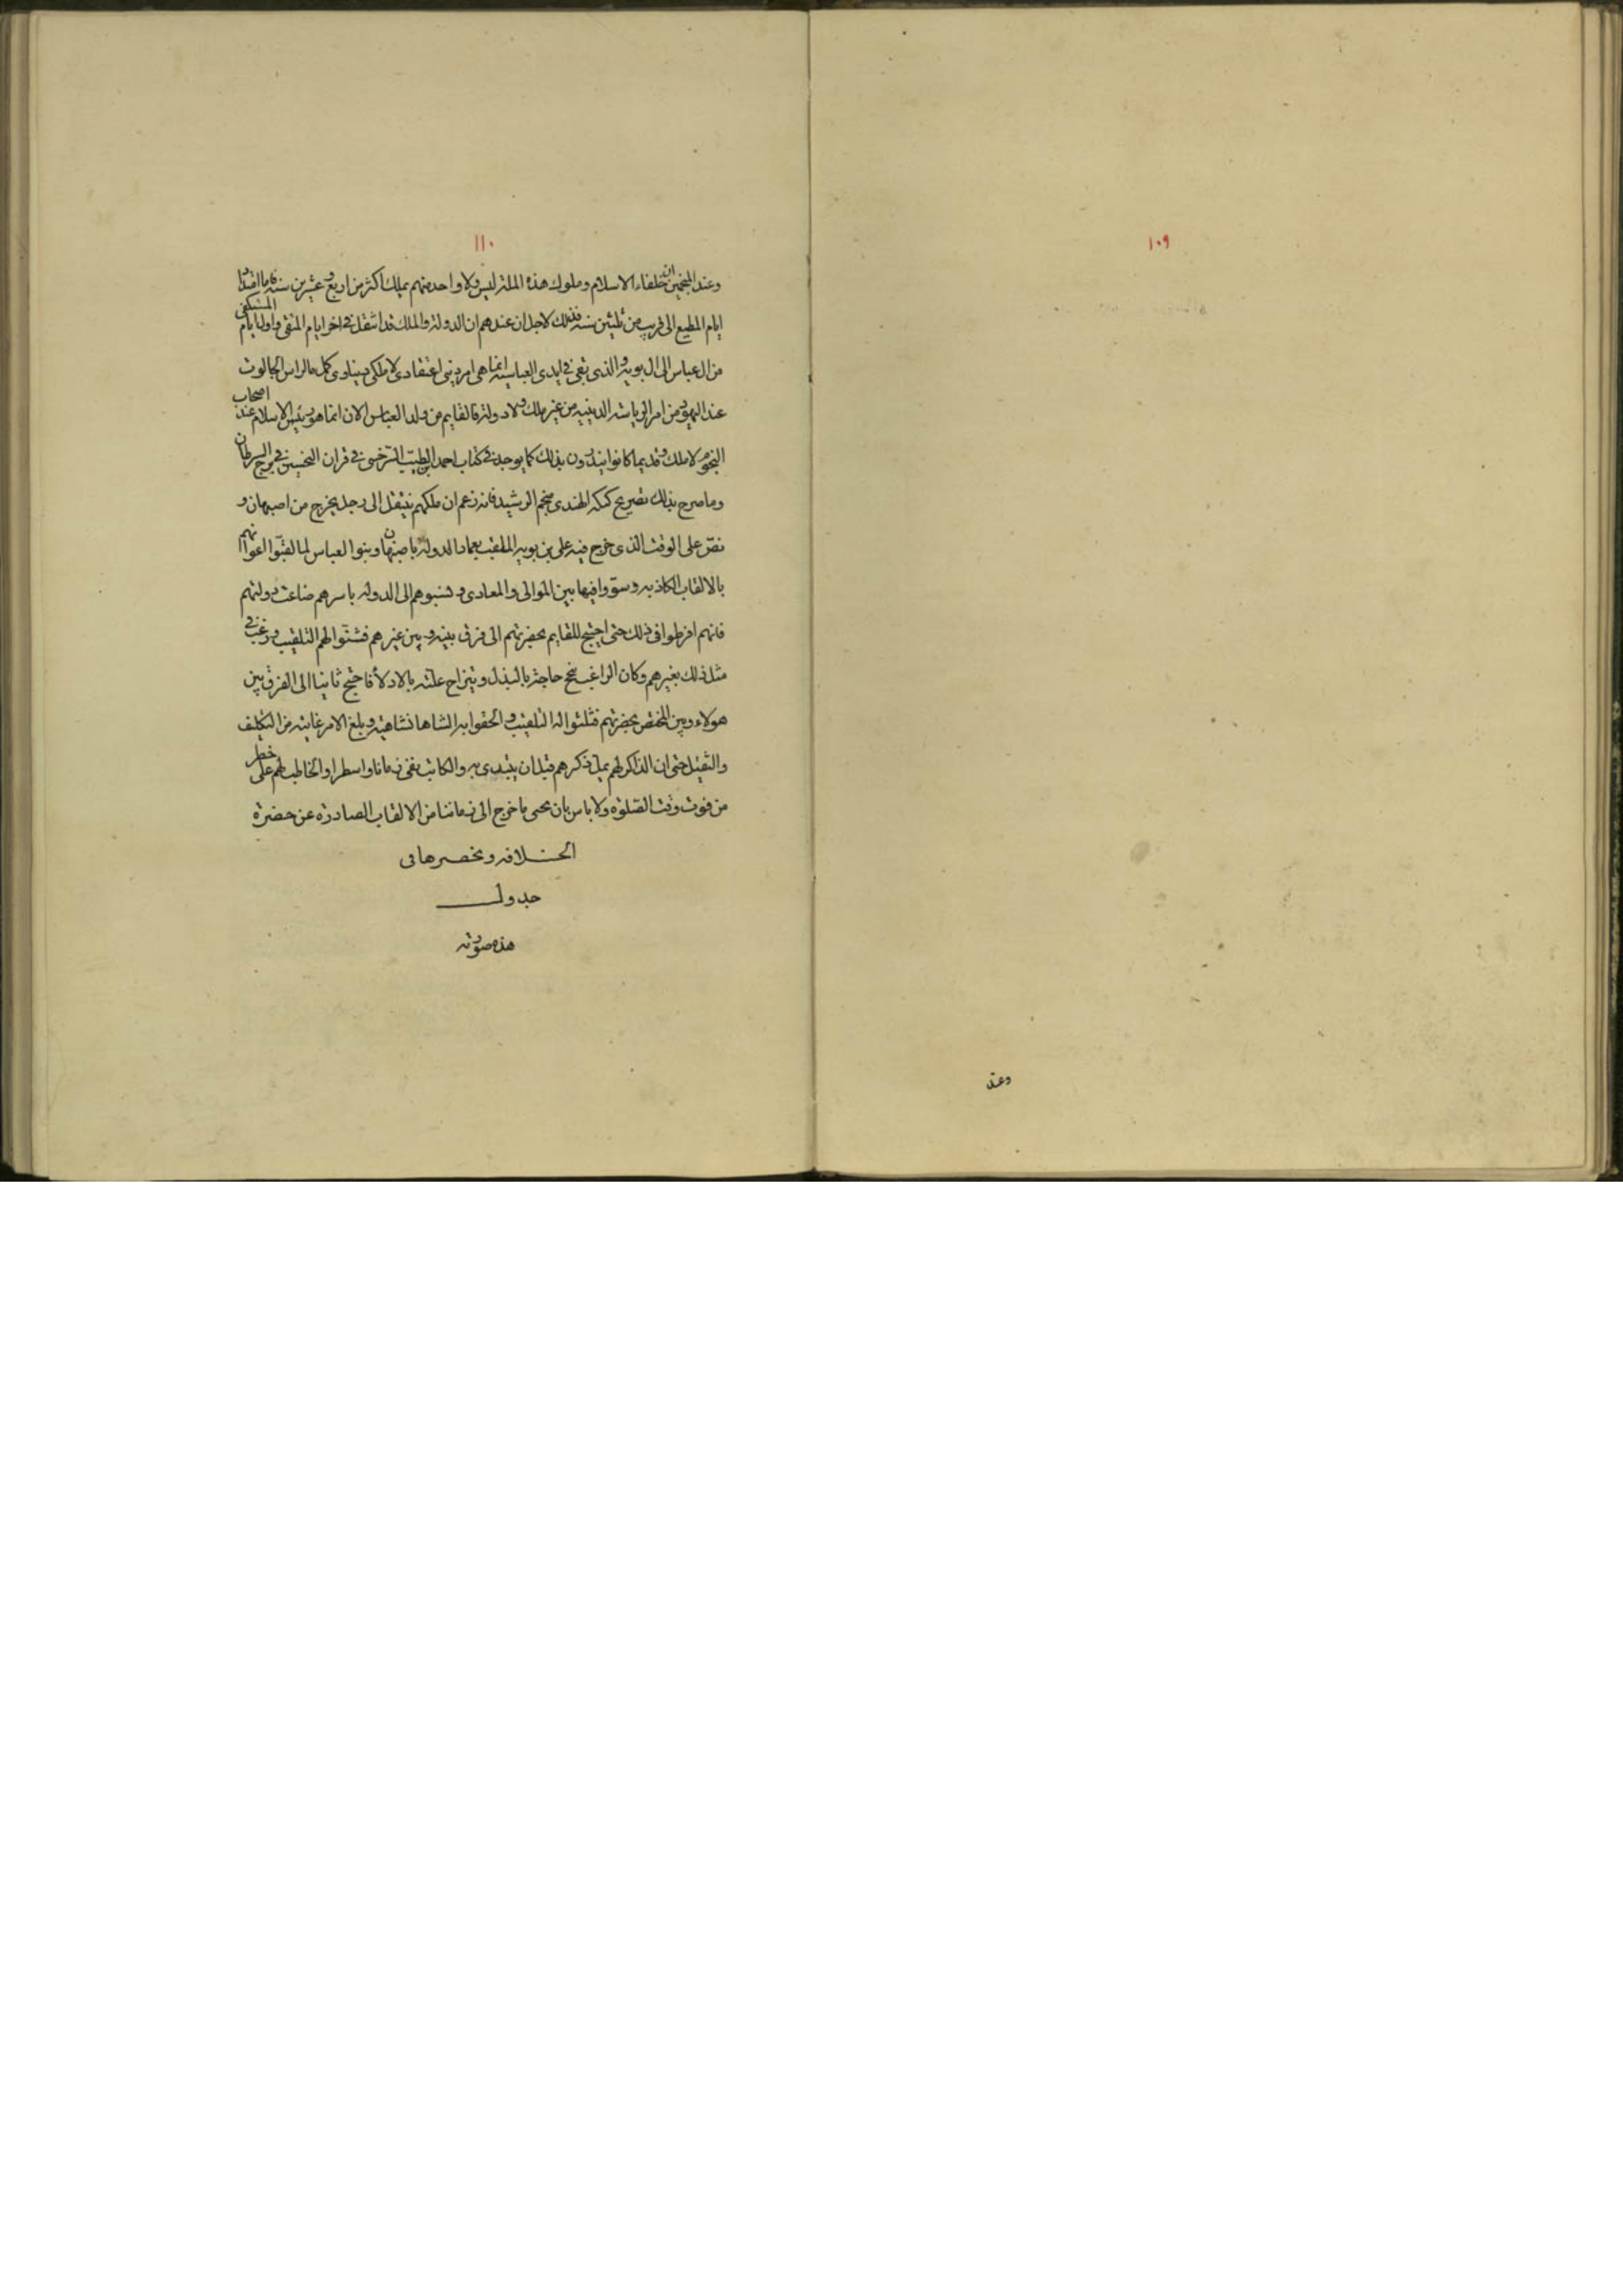 ١٠٩
وعند
١١٠
وعند المنجمين ان خلفاء الاسلام وملوك هذه الملة ليس ولا واحد منهم يملك اكثر من اربع وعشرين سنة فاما امتداد
ايام المطيع الى قريب من ثلثين سنة فذلك لاجل ان عندهم ان الدولة والملك قد انتقل في اخر ايام المتقى واول ايام المستكفى
من ال عباس الى ال بويه والذى بقى في ايدى العباسية انما هى امر دينى اعتقادى لا ملكى دنياوى كمل مالراس الجالوت
عند اليهود من امر الرياسة الدينيه من غير ملك ولا دولة فالقايم من ولد العباس الان انما هو رئيس الاسلام عند اصحاب
النجوم لا ملك وقديما كانوا ينذرون بذلك كما يوجد في كتاب احمد بن الطيب السرخسى في قران النحسين في برج السرطان
وما صرح بذلك تصريح كنكه الهندى منجم الرشيد فانه زعم ان ملكهم ينتقل الى رجل يخرج من اصبهان و
نصّ على الوقت الذى خرج فيه على بن بويه الملقب بعماد الدولة باصبهان وبنوا العباس لما لقبّوا اعوانهم
بالالقاب الكاذبه وسوّوا فيها بين الموالى والمعادى ونسبوهم الى الدوله باسرهم ضاعت دولتهم
فانهم افرطوا في ذلك حتى احتيج للقايم بحضرتهم الى فرق بينه وبين غيرهم فثنّوا لهم التلقيب ورغب في
مثل ذلك بغيرهم وكان الراغب ينجح حاجته بالبذل وينزاح علته بالادلا فاحتيج ثانيا الى الفرق بين
هولاء وبين المختص بحضرتهم فثلثوا له التلقيب والحقوا به الشاهانشاهيه وبلغ الامر غايته من التكليف
والتثقيل حتى ان الذاكر لهم يملّ ذكرهم قبل ان يبتدى به والكاتب يفنى زمانا واسطرا والمخاطب لهم على خطر
من فوت وقت الصّلوة ولا باس بان يحكى ما خرج الى زماننا من الالقاب الصادرة عن حضرة
الخلافه ونحصرها فى
جدول
هذه صورته